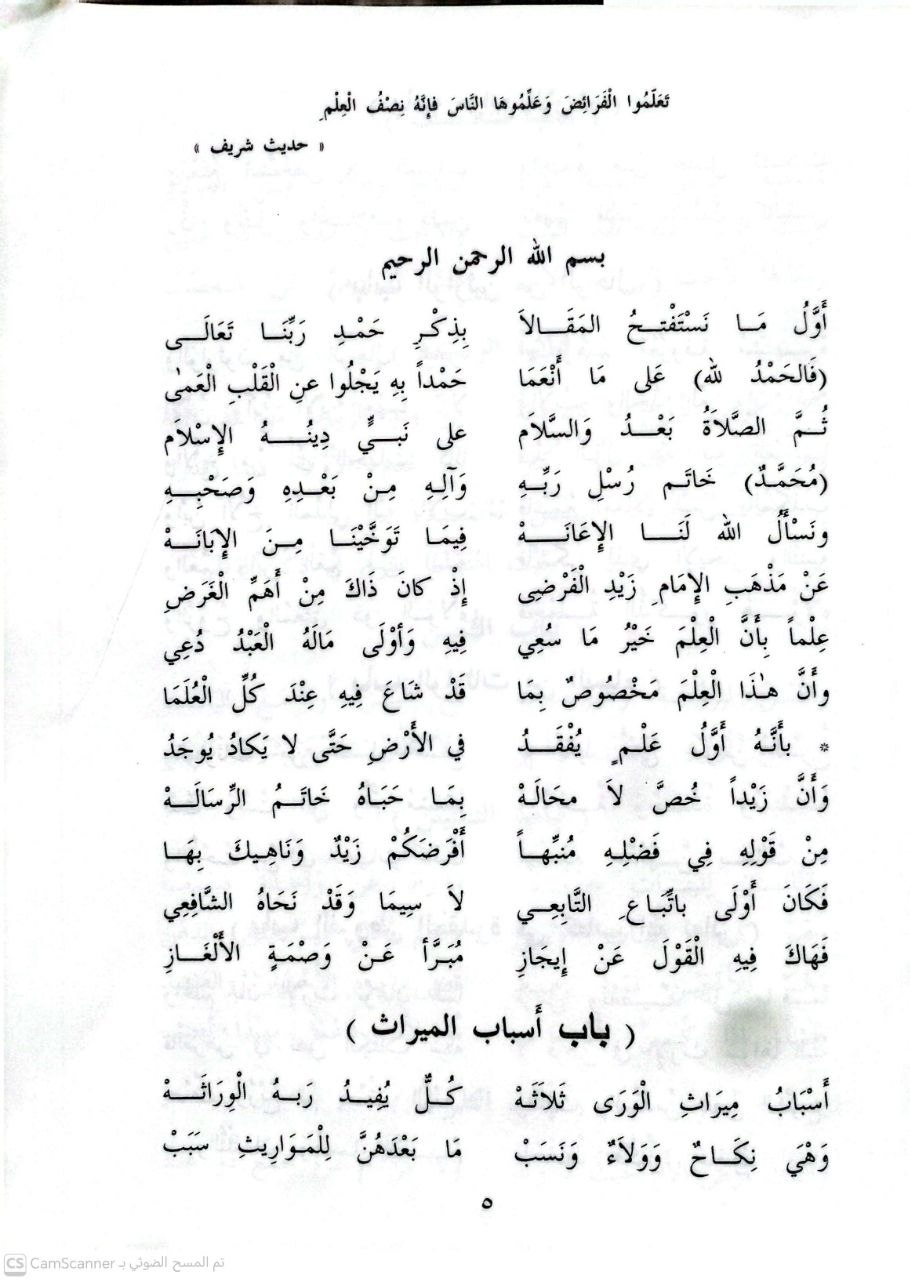 تَعَلَّمُوا الْفَرَائِضَ وَعَلِّمُوهَا النَّاسَ فَإِنَّهُ نِصْفُ الْعِلْمِ
« حديث شريف »
بسم الله الرحمن الرحيم
أَوَّلُ مَا نَسْتَفْتِحُ المَقَالاَ بِذِكْرِ حَمْدِ رَبِّنَا تَعَالَى
(فَالحَمْدُ للهِ) عَلى مَا أَنْعَمَا حَمْداً بِهِ يَجْلُوا عنِ الْقَلْبِ الْعَمٰى
ثُمَّ الصَّلاَةُ بَعْدُ وَالسَّلاَم على نَبيٍّ دِينُهُ الإِسْلاَم
(مُحَمَّدٌ) خَاتَم رُسْلِ رَبِّهِ وَآلِهِ مِنْ بَعْدِهِ وَصَحْبِهِ
ونَسْأَلُ الله لَنَا الإِعَانَهْ فِيمَا تَوَخَّيْنَا مِنَ الإِبَانَهْ
عَنْ مَذْهَبِ الإِمَامِ زَيْدِ الْفَرْضِى إِذْ كانَ ذَاكَ مِنْ أَهَمِّ الْغَرَضِ
عِلْماً بِأَنَّ الْعِلْمَ خَيْرُ مَا سُعِي فِيهِ وَأوْلَى مَالَهُ الْعَبْدُ دُعِي
وأَنَّ هٰذَا الْعِلْمَ مَخْصُوصٌ بِمَا قَدْ شَاعَ فِيهِ عِنْدَ كُلِّ الْعُلَمَا
* بأَنَّهُ أَوَّلُ عَلْمٍ يُفْقَدُ في الأَرْضِ حَتَّى لا يَكادُ يُوجَدُ
وَأَنَّ زَيْداً خُصَّ لاَ محَالَهْ بِمَا حَبَاهُ خَاتَمُ الرِّسَالَهْ
مِنْ قَوْلِهِ فِي فَضْلِهِ مُنبِّهاً أَفْرَضَكُمْ زَيْدٌ وَنَاهِيكَ بِهَا
فَكَانَ أَوْلَى باتِّبَاعِ التَّابِعِي لاَ سِيمَا وَقَدْ نَحَاهُ الشَّافِعِي
فَهَاكَ فِيهِ الْقَوْلَ عَنْ إِيجَازِ مُبَرَّأ عَنْ وَصْمَةٍ الأَلْغَازِ
( باب أسباب الميراث )
أَسْبَابُ مِيرَاثِ الْوَرَى ثَلاَثَهْ كُلٌّ يُفِيدُ رَبهُ الْوِرَاثَهْ
وَهْيَ نِكَاحٌ وَوَلاَءٌ وَنَسَبْ مَا بَعْدَهُنَّ لِلْمَوَاريثِ سَبَبْ
٥
CS CamScanner تم المسح الضوئي بـ